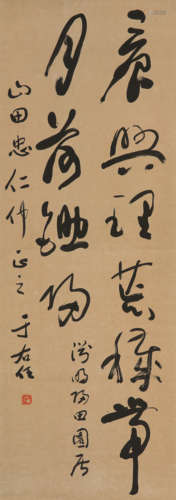 晨興理荒穢帶
月荷鋤歸
淵明歸田園居
山田忠仁伟正之
于右任